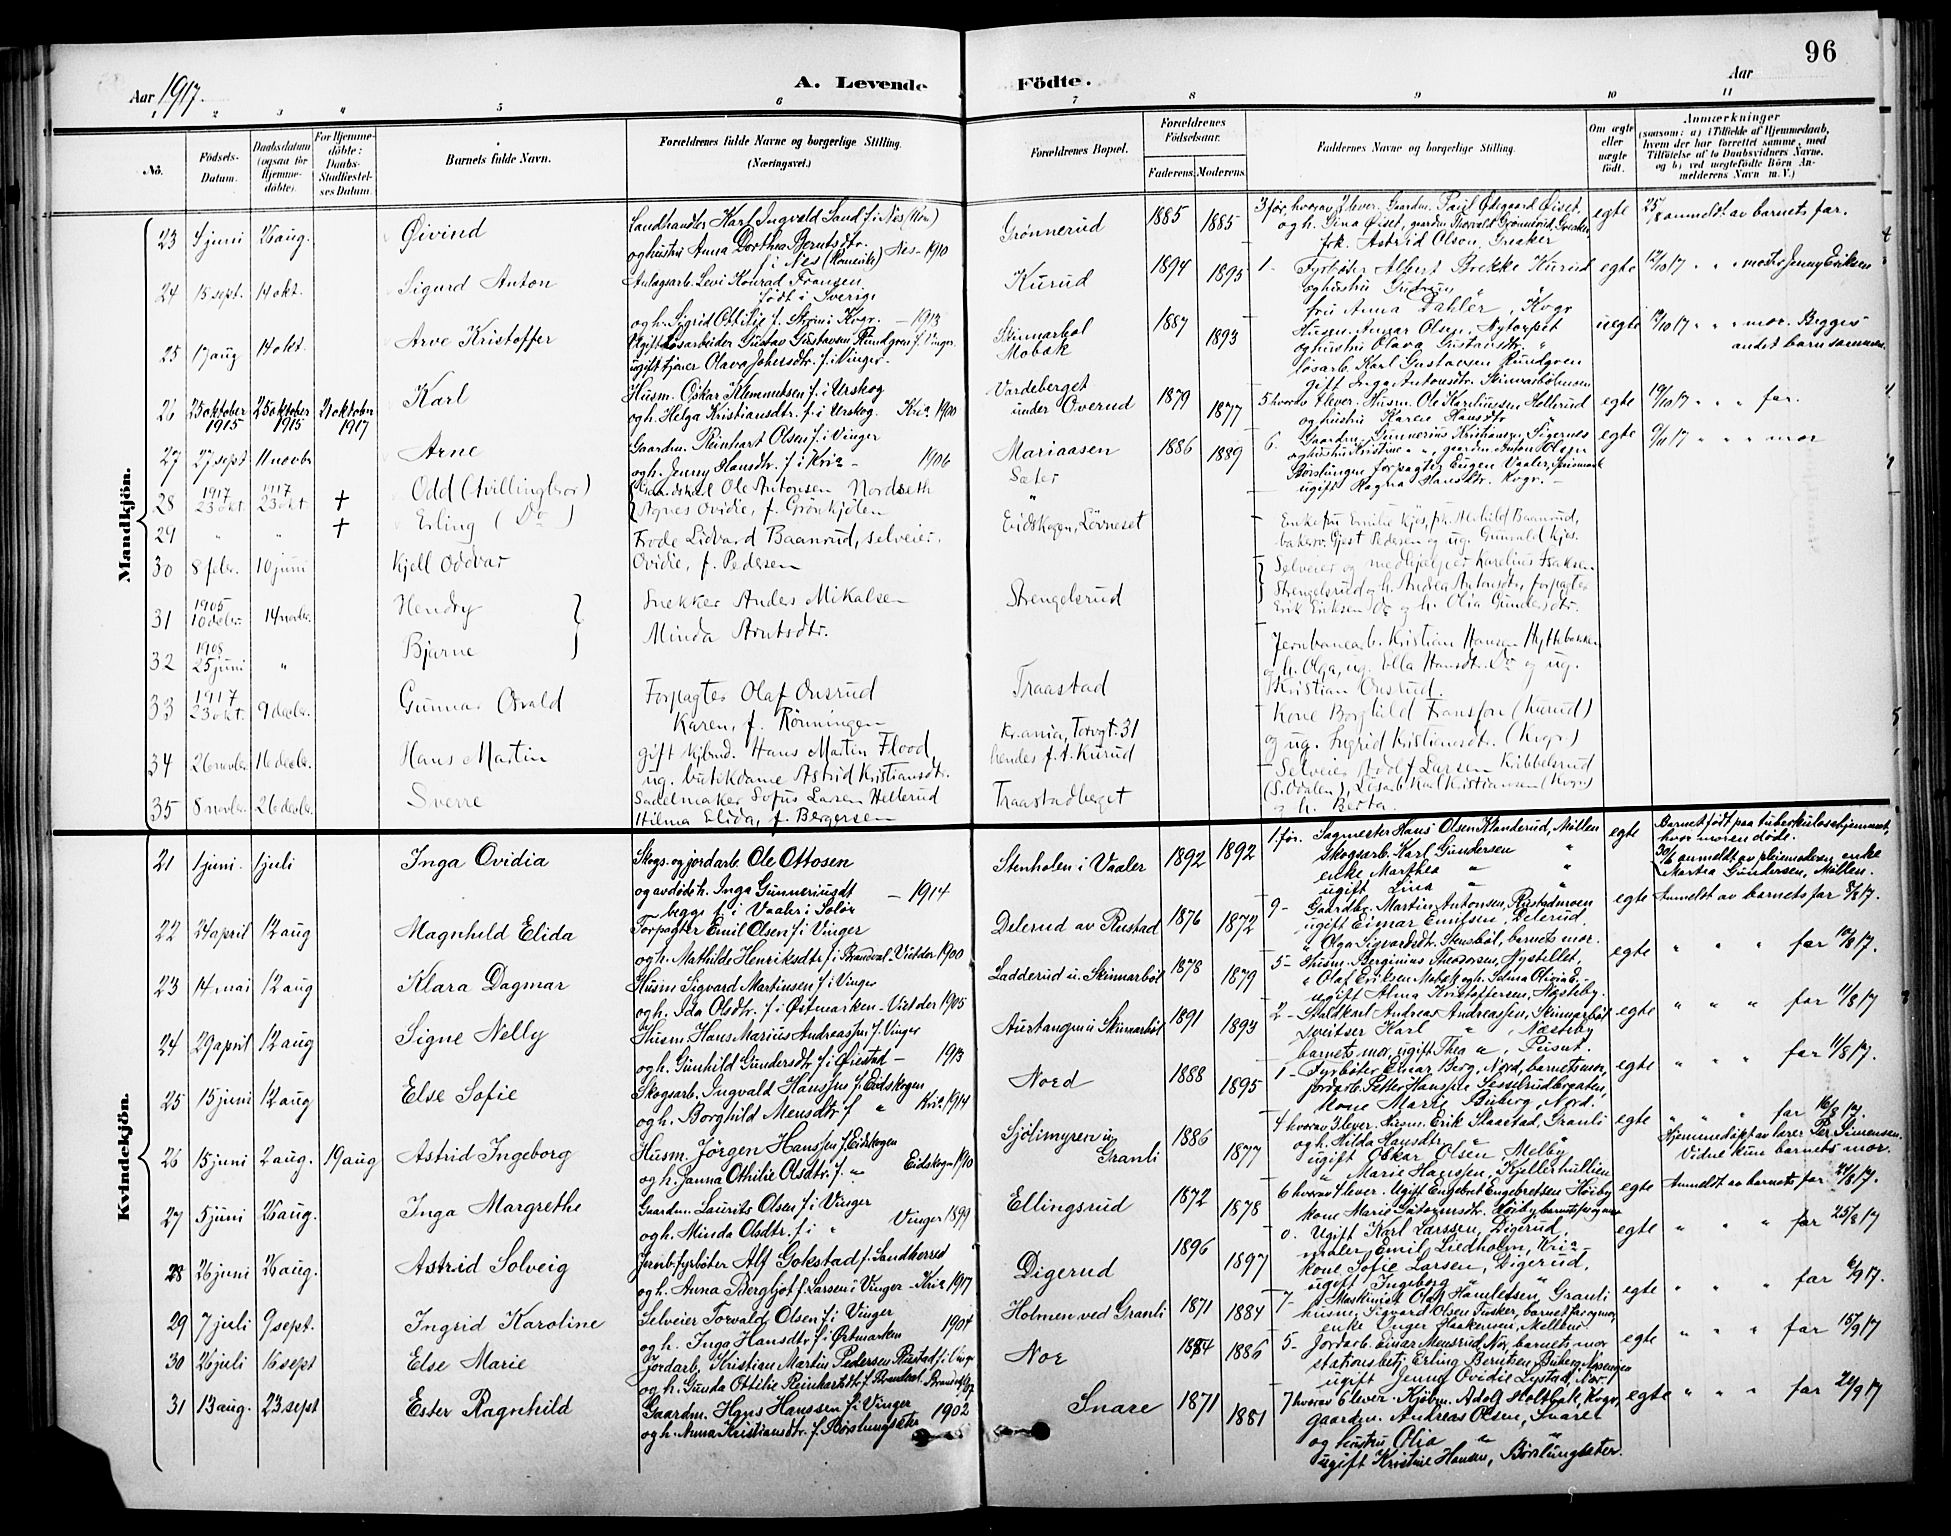 96
Aar 1917.
A. Levende Födte.
Aar
1 2 3 4 5 6 7 8 9 10 11
No.
Födsels-Datum.
Daabsdatum (ogsaa for Hjemmedöbte).
For Hjemmedöbte: Daabs-Stadfæstelses Datum.
Barnets fulde Navn.
Forældrenes fulde Navne og borgerlige Stilling. (Næringsvei.)
Forældrenes Bopæl.
Forældrenes Födselsaar.
Faderens. Moderens.
Faddernes Navne og borgerlige Stilling.
Om ægte eller uægte födt.
Anmærkninger
(saasom: a) i Tilfælde af Hjemmedaab, hvem der har forrettet samme, med Tilföielse af to Daabsvidners Navne, og b) ved uægtefödte Börn Anmelderens Navn m. V.)
Mandkjön.
23 4 juni 26 aug. Øivind
Landhandler Karl Ingvald Sand f. i Nes (Rom)
og hustru Anna Dorthea Berntsdtr. f. i Nes (Romerike) Nes - 1910
Grønnerud 1885 1885
frk. Astrid Olsen, Greaker
egte 25/8 anmeldt av barnets far.
24 15 sept. 14 okt. Sigurd Anton
Anlagsarb. Levi Konrad Fransen født i Sverige
og h. Sigrid Ottilie f. Strøm i Kvgr. - 1913
Kurud 1894 1895
1 - Fyrbøter Albert Brekke Kurud
og hustru Gudrun "
fru Anna Dahler, Kvgr
egte 12/10 17 " " moster Jenny Eriksen
25 17 aug 14 okt. Arve Kristoffer
Ugift Løsarbeider Gustav Gustavsen Rundgren f. i Vinger
ugift tjener Olava Johersdtr. f. i Vinger.
Skinnarbøl Mobæk 1887 1893
Husm. Anyar Olsen, Nytorpet
og hustru Olava Gustavsdtr. "
løsarb. Karl Gustavsen Rundgren
gift Inga Antonsdtr. Skinnarbølmoen
uegte 12/10 17 " " mor. Begges andet barn sammen.
26 25 oktober 1915 25 oktober 1915 21 oktober 1917 Karl
Husm. Oskar Klemmetsen f. i Urskog
og h. Helga Kristiansdtr. f. i Urskog. Kria 1900
Vardeberget under Overud 1879 1877
5 hvorav 4 lever. Husm. Ole Kareliussen Hollerud
og hustru Karen Hansdtr
egte 19/10 17 " " far.
27 27 sept 11 novbr Arne
Gaardm. Reinhart Olsen f. i Vinger
og h. Jenny Hansdtr. f. i Kria - 1906
Mariaasen 1886 1889
6. Gaardm. Gunnerius Kristiansen, Sigernes
ugift Ragna Hansdtr. Kvgr. -
egte 9/11 17 " " mor
28 1917 23 okt. 1917 23 okt. + Odd (tvillingbror)
Gaardskarl Ole Antonsen Nordseth
Sæter
29 " " + Erling (Do)
Agnes Ovidie, f. Grønkjølen
"
30 8 febr. 10 juni Kjell Oddvar
Frode Lidvard Baanrud, selveier.
Ovidie, f. Pedersen
Eidskogen, Løvneset
Enkefru Emilie Kjos, frk. Alvhild Baanrud,
bakersv. Gjest Pedersen og ug. Gunvald Kjos.
31 1905 10 decbr. 14 novbr. Hendry
Snekker Anders Mikalsen
32 1908 25 juni " Bjarne
Minda Arntsdtr.
Strengelsrud
Selveier og medhjelper Karelius Isaksen
Strengelsrud og h. Andrea Antonsdtr, forpagter
Erik Eriksen Do og h. Olia Gundersdtr.
33 1917 23 okt. 9 decbr. Gunnar Osvald
Forpagter Olaf Onsrud
Karen, f. Rönningen
Traastad
Jernbanearb. Kristian Hansen Hyttebakken
og h. Olga, ug. Ella Hansdtr. Do og ug.
Kristian Onsrud.
34 26 novbr. 16 decbr. Hans Martin
gift kjbmd. Hans Martin Flood,
ug. butikdame Astrid Kristiansdtr.
Kr.ania, Torvgt. 31
hendes f. t. Kurud
Kone Borghild Fransson (Kurud)
og ug. Ingrid Kristiansdtr. (Kvgr)
35 8 novbr. 26 decbr. Sverre
Sadelmaker Sofus Larsen Hellerud
Hilma Elida, f. Bergersen
Traastadberget
Selveier Adolf Larsen Kibbelsrud
(S.Odalen), Løsarb Karl Kristiansen (Kvgr)
og h. Berta.
Kvindekjön.
21 1 juni. 1 juli Inga Ovidia
Skogs. og jordarb Ole Ottosen
og avdøde h. Inga Gunneriusdt - 1914
begge f. i Vaaler i Solør
Stenholen i Vaaler 1892 1892
1. før. Sagmester Hans Olsen Klanderud, Möllen
Skogsarb. Karl Gundersen "
enke Marthea " "
ugift Lina " "
egte Barnet født paa tuberkulosehjemmet, hvor moren døde.
30/6 anmeldt av pleiemoderen enke Martea Gundersen, Möllen.
22 24 april 12 aug Magnhild Elida
Forpagter Emil Olsen f. i Vinger
og h. Mathilde Henriksdtr f. i Brandval - Vielder 1900
Delerud av Rustad 1876 1872
9 - Gaardbr. Martin Antonsen, Rustadmoen
ugift Einar Emilsen, Delerud
" Olga Sigvardsdt. Stensbøl, barnets mor.
egte Anmeldt av barnets far 8/8 17.
23 14 mai 12 aug Klara Dagmar
Husm Sigvard Martinsen f. i Vinger
og h. Ida Olsdtr. f. i Østmarken - Viet der 1905
Ladderud u. Skinnarbøl 1878 1879
5 - Husm. Berginius Theodorsen, Jystellet,
ugift Alma Kristoffersen, Nøisteby.
egte " " " far 10/8 17.
24 29 april 12 aug Signe Nelly
Husm. Hans Marius Andreassen f. i Vinger
og h. Gunhild Gundersdtr. f. i Øiestad - 1913
Austangen u. Skinnarbøl 1891 1893
2 - Staldkarl Andreas Andreassen, Skinnarbøl
Sveitser Karl " , Næsteby
barnets mor, ugift Thea " , Pusut.
egte " " " far 11/8 17
25 15 juni 12 aug Else Sofie
Skogsarb. Ingvald Hanssen f. Eidskogen
og h. Borghild Mensdtr f. " Kria 1914
Nord 1888 1895
1 - Fyrbøter Einar Berg, Nord, barnets mor,
jordarb. Petter Hanssen Sesselrudbraaten,
kone Marie Buberg, Nord.
egte " " " far 11/8 17.
26 15 juni 2 aug. 19 aug Astrid Ingeborg
Husm. Jörgen Hanssen f. Eidskogen
og h. Janna Othilie Olsdtr. f. " Eidskogen 1910
Sjölimyren u. Granli 1886 1877
4 hvorav 3 lever. Husm. Erik Skaastad, Granli
og h. Hilda Hansdtr "
ugift Oskar Olsen Melby
" Marie Hanssen, Kjellerhullien
egte " " " far 16/8 17.
Hjemmedøpt av lærer Per Simensen. Vidne kun barnets mor.
27 5 juni 26 aug. Inga Margrethe
Gaardm. Laurits Olsen f. i Vinger
og h. Minda Olsdtr. f. i " Vinger 1899
Ellingsrud 1872 1878
6 hvorav 4 lever. Ugift Engebret Engebretsen Høiby
egte Anmeldt av barnets far 24/8 17.
28 26 juni 26 aug. Astrid Solveig
Jernb. fyrbøter Alf Gokstad f. Sandherred
og h. Anna Bergljot f. Larsen i Vinger - Kria 1917
Digerud 1896 1897
0. Ugift Karl Larssen, Digerud,
maler Emil Liedholm, Kria -
kone Sofie Larsen, Digerud,
ugift Ingeborg " "
egte " " " far 25/8 17
29 7 juli 9 sept. Ingrid Karoline
Selveier Torvald Olsen f. i Vinger
og h. Inga Hansdtr. f. i Østmarken 1904
Holmen ved Granli 1871 1884
7 - Maskinist Olaf Hamletsen, Granli
husm. Sigvard Olsen Tusker, barnets far og mor,
egte " " " far 6/9 17.
30 26 juli 16 sept Else Marie
Jordarb. Kristian Martin Pedersen Rustad f. i Vinger
og h. Gunda Ottilie Reinhartsdtr f. Brandval.
Nor 1884 1886
5 - Jordarb. Einar Mensrud, Nor, barnets mor
stationsbetj. Erling Berntsen, Buberg, Nor
ugift Jenny Ovidie Lystad, Nor.
egte " " " far 15/9 17
31 13 aug. 23 sept Ester Ragnhild
Gaardm. Hans Hanssen f. i Vinger 1902
og h. Anna Kristiansdtr. f. Børslungseter
Snare 1871 1881
7 hvorav 6 lever - Kjøbm. Adolf Holtbak, Kvgr,
gaardm. Andreas Olsen, Snare
og hustru Olia " "
ugift Kristine Hansen, Børslungseter.
egte " " " far 20/9 17